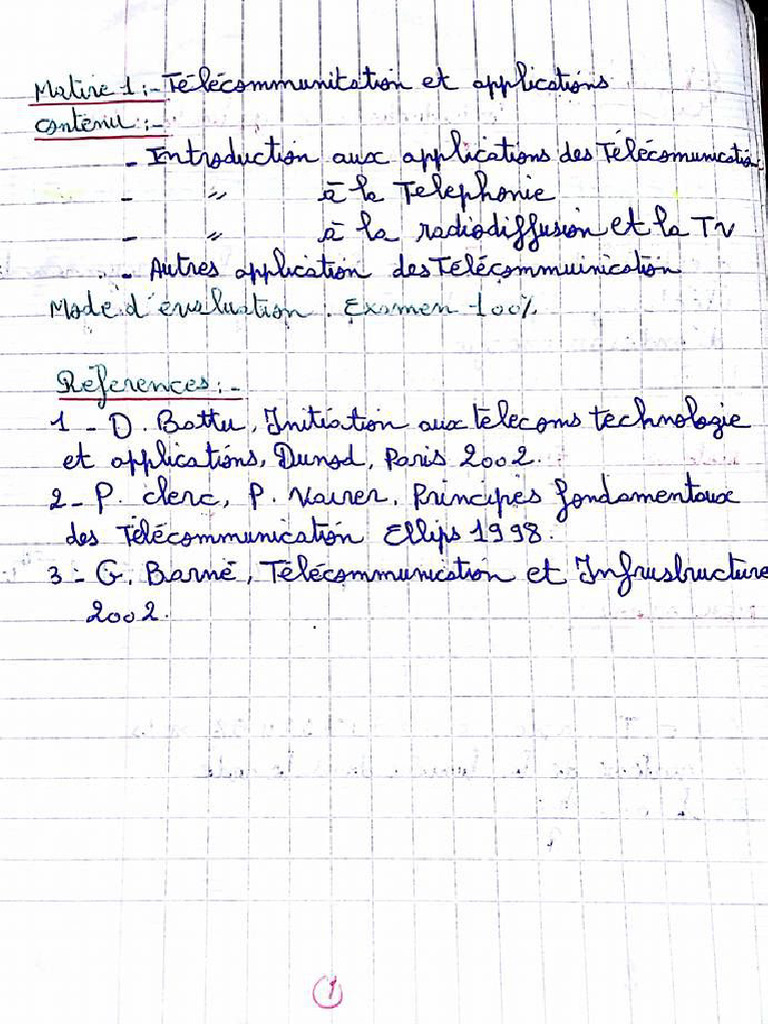 Matire 1:- Télécommunitation et applications
Contenu:-
- Introduction aux applications des Télécomunication
- " à la Telephonie
- " à la radiodiffusion et la TV
- Autres application des Télécommuinication
Mode d'évaluation. Examen 100%
Réferences:-
1 - D. Battu, Initiation aux télécoms technologie
et applications, Dunod, Paris 2002.
2 - P. Clerc, P. Xavier, Principes fondamentaux
des Télécommunication Ellips 1998.
3 - G. Barné, Télécommunication et Infrusbructure
2002.
1